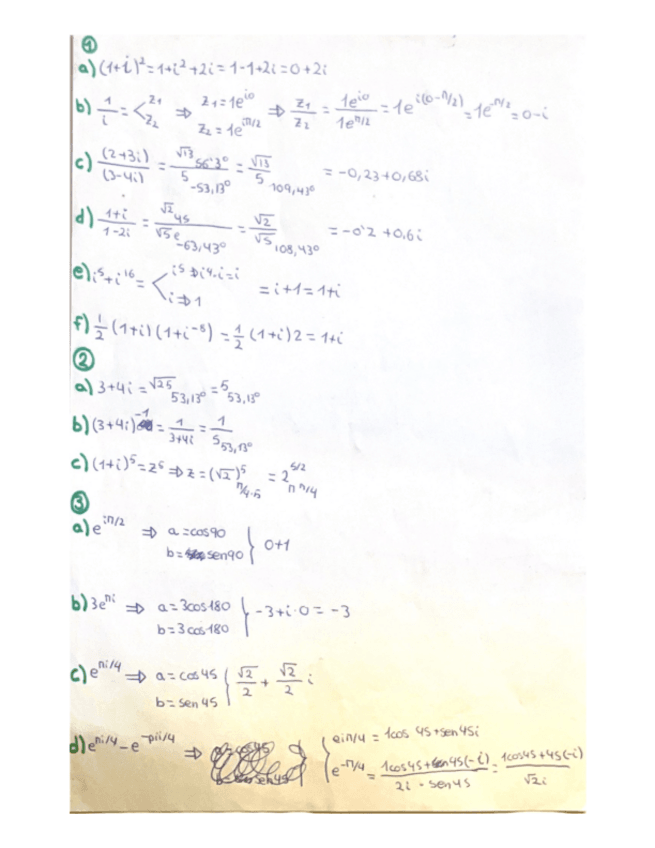 ①
a) (1+i)² = 1+i²+2i = 1-1+2i = 0+2i
b) 1/i = < z₁ z₂ ⇒ z₁ = 1e^{i0} z₂ = 1e^{iπ/2} ⇒ z₁/z₂ = 1e^{i0}/1e^{π/2} = 1e^{i(0-π/2)} = 1e^{-π/2} = 0-i
c) (2+3i)/(3-4i) = √13 56'3º / 5 -53,13º = √13/5 109,43º = -0,23+0,68i
d) 1+i/1-2i = √2 45 / √5 e -63,43º = √2/√5 108,43º = -0'2+0,6i
e) i⁵+i¹⁶ = < i⁵ ⇒ i⁴·i = i
i ⇒ 1 = i+1 = 1+i
f) 1/2 (1+i)(1+i⁻⁸) = 1/2 (1+i)2 = 1+i
②
a) 3+4i = √25 53,13º = 5 53,13º
b) (3+4i)⁻¹ = 1/3+4i = 1/5 53,13º
c) (1+i)⁵ = z⁵ ⇒ z = (√2)⁵ π/4·5 = 2^{5/2} π π/4
③
a) e^{iπ/2} ⇒ a = cos90
b = sen90 } 0+1
b) 3e^{πi} ⇒ a = 3cos180
b = 3cos180 } -3+i·0 = -3
c) e^{πi/4} ⇒ a = cos45
b = sen45 { √2/2 + √2/2 i
d) e^{πi/4} - e^{-pii/4} ⇒ { eiπ/4 = 1cos 45+sen45i
e^{-π/4} = 1cos45+sen45(-i) / 2i - sen45 = 1cos45+45(-i) / √2i